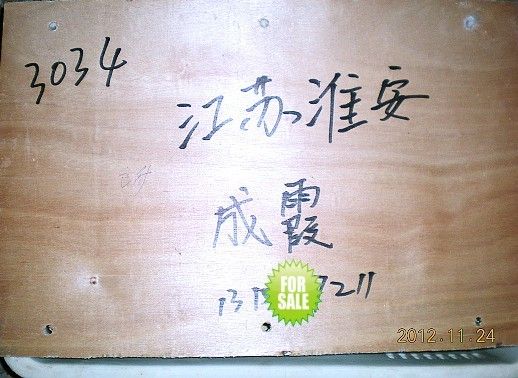 3034
江苏淮安
成霞
FOR
SALE
7211
2012.11.24